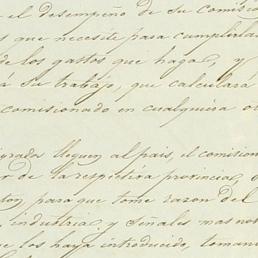 el desempeño de su comisio
que necesite para cumplirla
de los gastos que haga, y
á su trabajo, que calculará
comisionado en cualquiera o
grados lleguen al pais, el comision
r de la respectiva provincia
para que tome razon del
industria, y señales mas not
e los haya introducido, toman